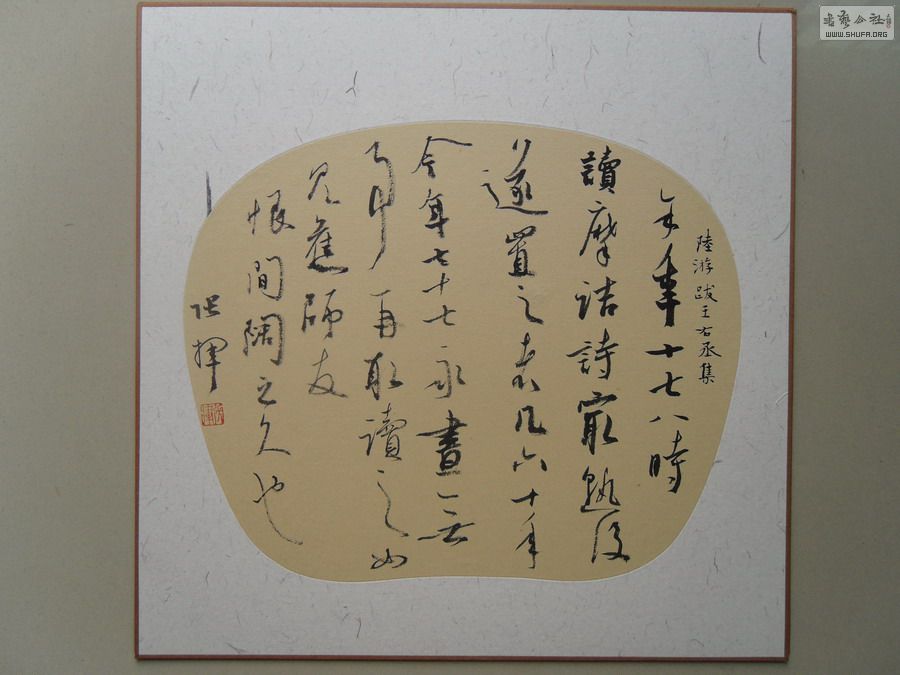 陸游跋王右丞集
余年十七八時
讀摩詰詩最熟後
遂置之者几六十年
今年七十七永晝無
事再取讀之如
見舊師友
恨間闊之久也
張揮
書藝公社
WWW.SHUFA.ORG